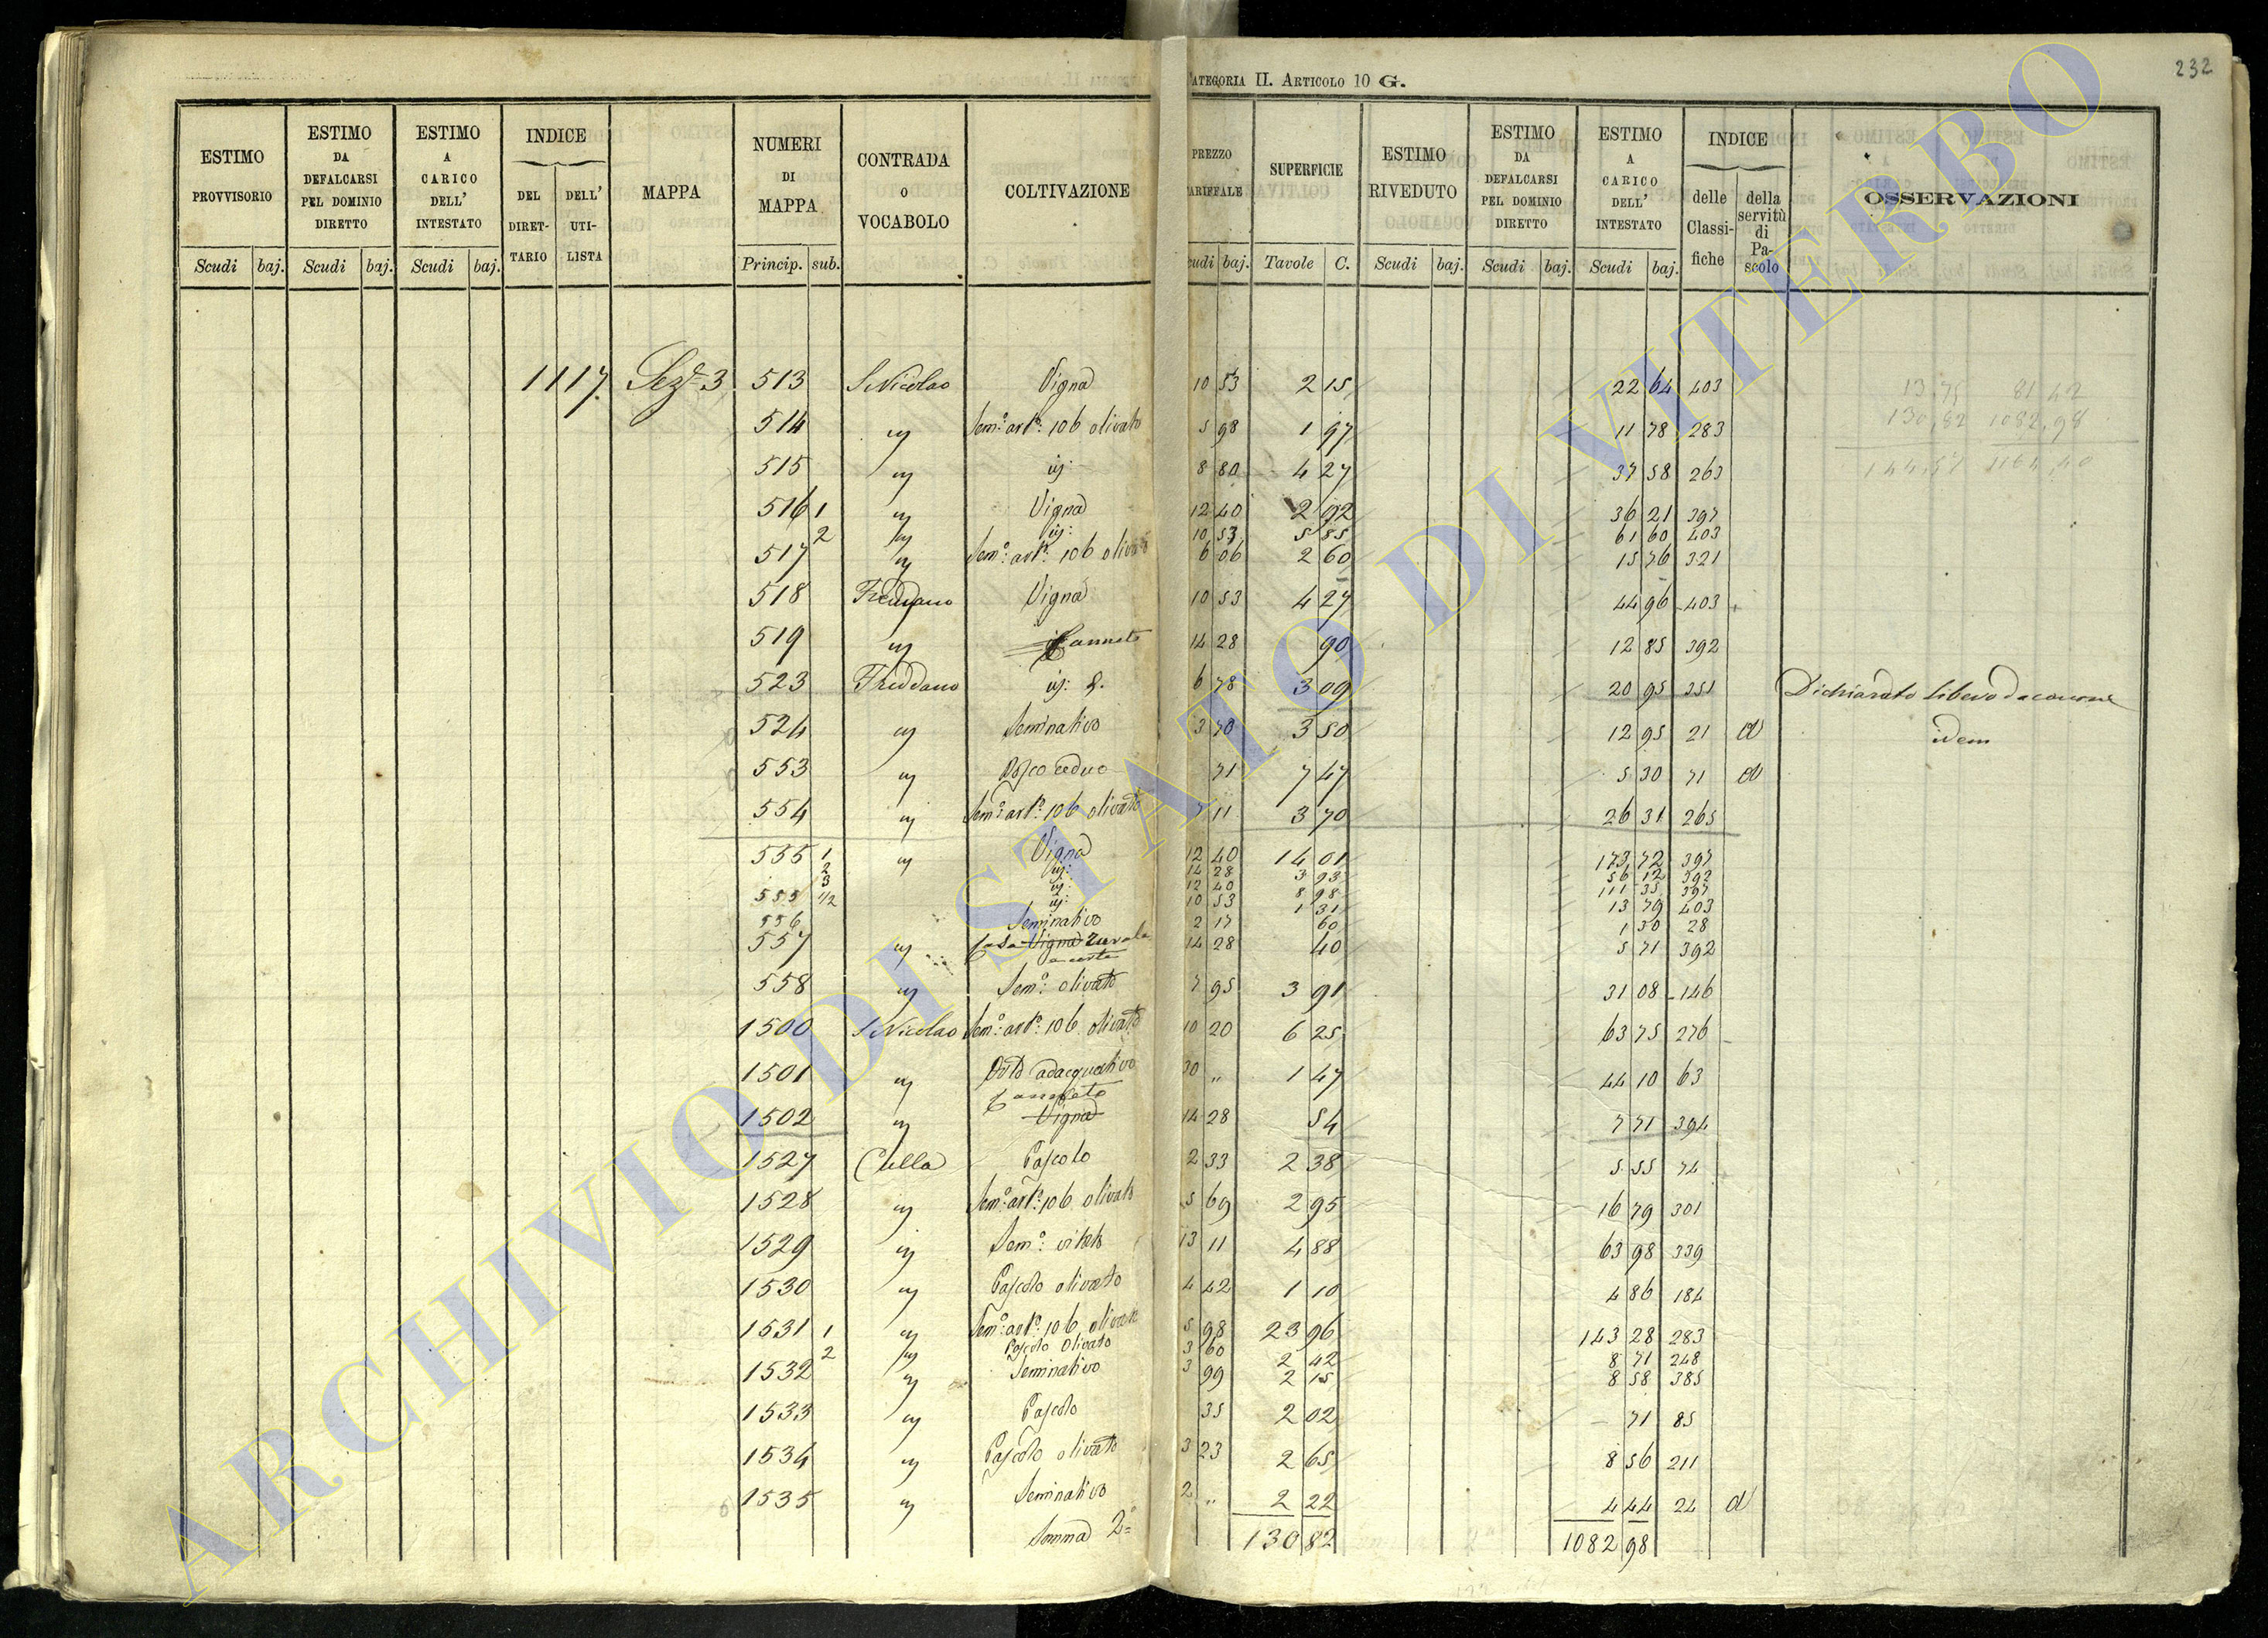 CATEGORIA II. ARTICOLO 10 G.
232
ESTIMO PROVVISORIO Scudi baj.
ESTIMO DA DEFALCARSI PEL DOMINIO DIRETTO Scudi baj.
ESTIMO A CARICO DELL' INTESTATO Scudi baj.
INDICE DEL DIRETTARIO DELL' UTILISTA
MAPPA
NUMERI DI MAPPA Princip. sub.
CONTRADA O VOCABOLO
COLTIVAZIONE
PREZZO TARIFFALE Scudi baj.
SUPERFICIE Tavole C.
ESTIMO RIVEDUTO Scudi baj.
ESTIMO DA DEFALCARSI PEL DOMINIO DIRETTO Scudi baj.
ESTIMO A CARICO DELL' INTESTATO Scudi baj.
INDICE delle Classifiche della servitù di Pascolo
OSSERVAZIONI
1117 Sez.e 3 513 S Nicolao Vigna 10 53 2 15 22 64 403 13,75 81,42
514 " Sem.o art.o 106 olivato 5 98 1 97 11 78 283 130,82 1082,98
515 " id: 8 80 4 27 37 58 263 144,57 1164,40
516 1 " Vigna 12 40 2 92 36 21 397
2 " id: 10 53 5 85 61 60 403
517 " Sem.o art.o 106 olivato 6 06 2 60 15 76 321
518 Freddano Vigna 10 53 4 27 44 96 403
519 " Canneto 14 28 90 12 85 392
523 Freddano id: 6 78 3 09 20 95 351 Dichiarato libero da canone
524 " Seminativo 3 70 3 50 12 95 21 a idem
553 " Bosco ceduo 71 7 47 5 30 71 a
554 " Sem.o art.o 106 olivato 7 11 3 70 26 31 265
555 1 " Vigna 12 40 14 01 173 72 397
2 id: 14 28 3 93 56 12 392
3 id: 12 40 8 98 111 35 397
555 1/2 id: 10 53 1 31 13 79 403
556 Seminativo 2 17 60 1 30 28
557 " Casa Vigna 14 28 40 5 71 392
558 " Sem.o olivato 7 95 3 91 31 08 146
1500 S Nicolao Sem.o art.o 106 olivato 10 20 6 25 63 75 276
1501 " Orto adacquativo 30 " 1 47 44 10 63
Canneto
1502 " Vigna 14 28 54 7 71 394
1527 Cella Pascolo 2 33 2 38 5 55 74
1528 " Sem.o art.o 106 olivato 5 69 2 95 16 79 301
1529 " Sem.o vitato 13 11 4 88 63 98 339
1530 " Pascolo olivato 4 42 1 10 4 86 184
1531 1 " Sem.o art.o 106 olivato 5 98 23 96 143 28 283
2 " Pascolo Olivato 3 60 2 42 8 71 248
1532 " Seminativo 3 99 2 15 8 58 385
1533 " Pascolo 35 2 02 71 85
1534 " Pascolo olivato 3 23 2 65 8 56 211
1535 " Seminativo 2 " 2 22 4 44 24 a
Somma 2a 130 82 1082 98
ARCHIVIO DI STATO DI VITERBO